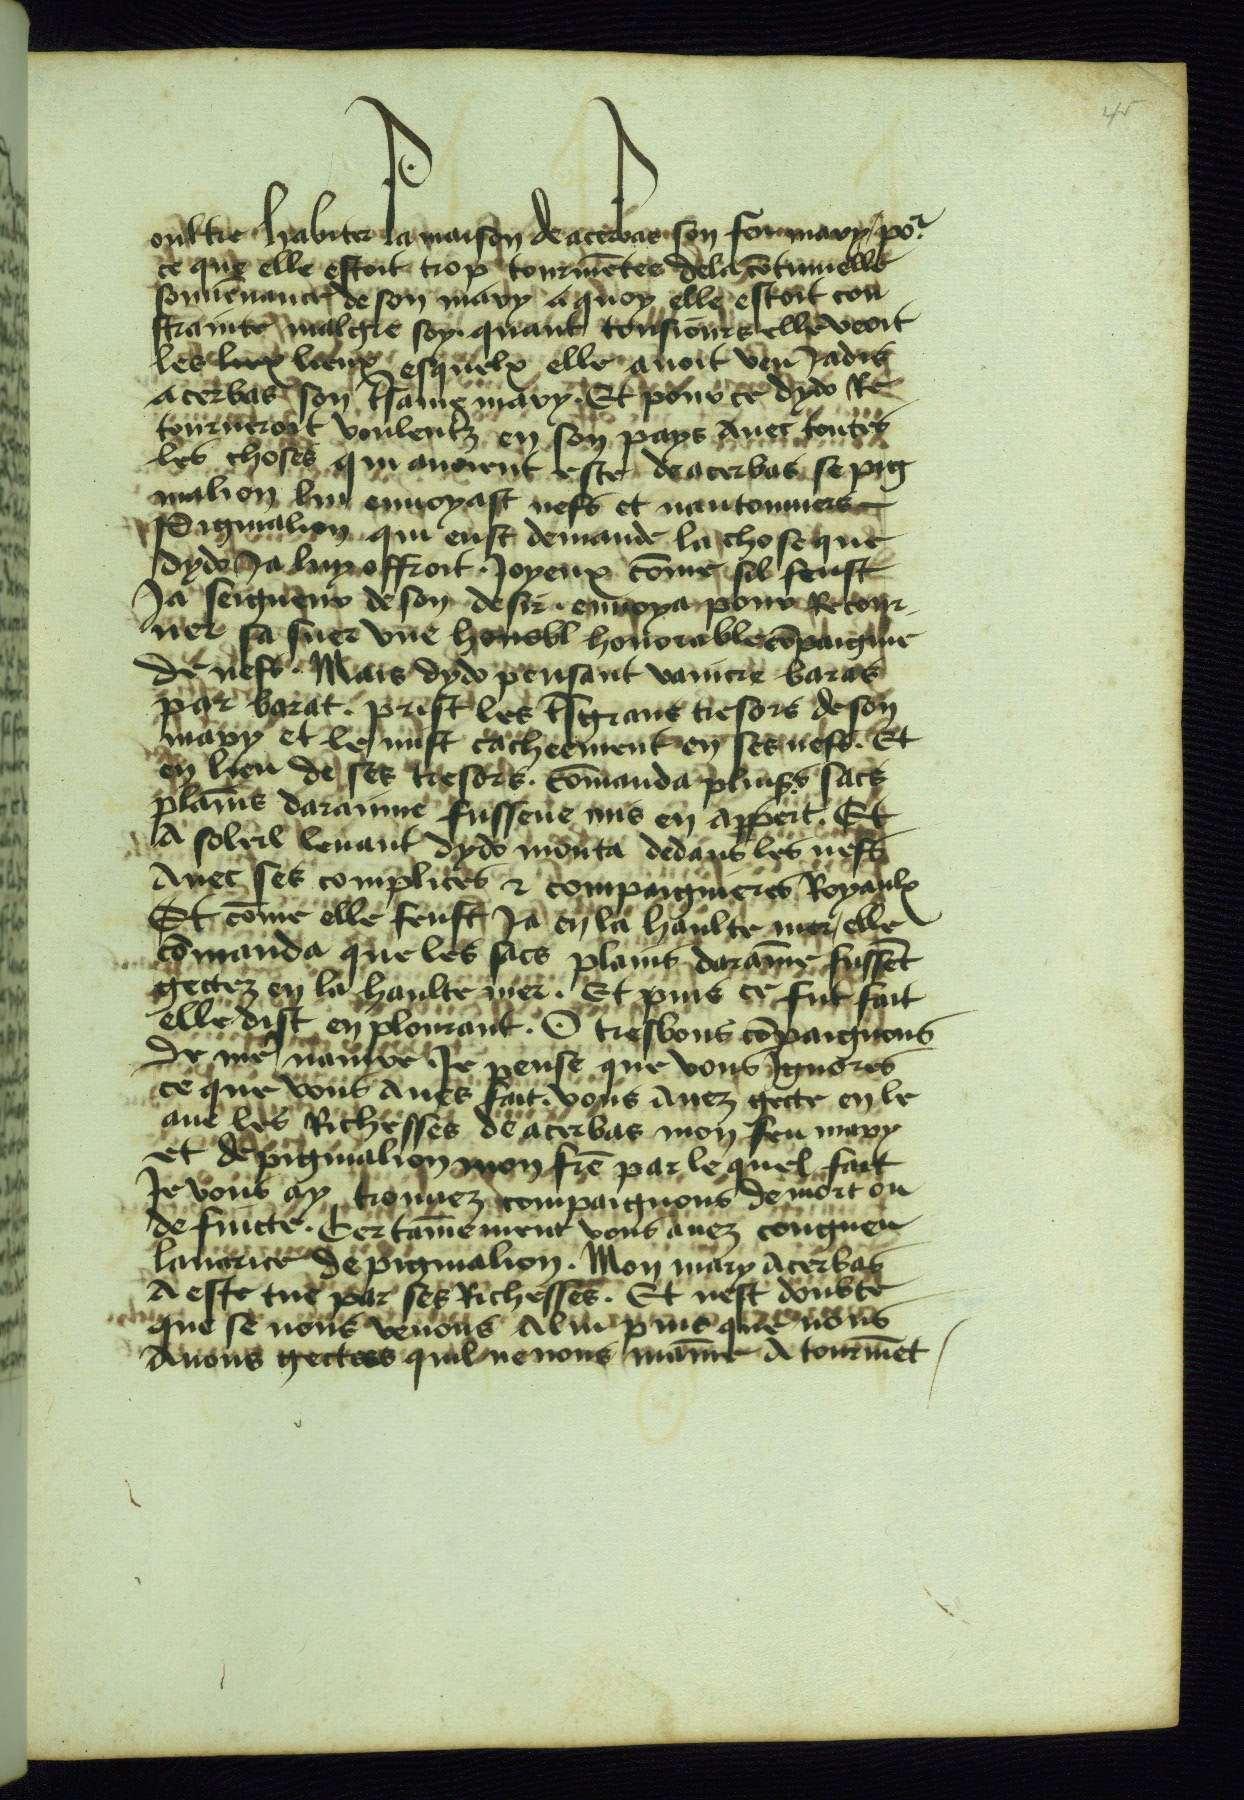 45
oultre habiter la maison de acerbas son feu mary / poʳ
ce que elle estoit trop tourmētee dela cōtinuelle
souuenance de son mary a quoy elle estoit con
strainte malgre soy. quant tousiours elle veoit
les lieux lieux esquelx elle auoit veu Jadis
acerbas son mary. Et pour ce dydo Re
tourneroit voulentz en son pays Auec toutes
les choses qui auoient este de acerbas se pig
malion luy enuoyast nefs et nautonniers
Pigmalion qui eust demande la chose que
dydo Ja luy offroit. Joyeux cōme sil feust
Ja seigneur de son desir. enuoya pour Retour-
ner sa suer vne honobl honorable cōpaignie
de nefs. Mais dydo pensant vaincre baras
par barat. prist les grans tresors de son
mary et le mist cacheement en ses nefs. Et
en lieu de ses tresors. cōmanda plus̄s sacs
plains daranne fussene mis en appert. Et
A soleil leuant dydo monta dedans les nefs
Auec ses complices & compaignieres Royaulx
Et cōme elle feust Ja en la haulte mer / elle
cōmanda que les sacs plains darāme fussēt
gectez en la haulte mer. Et puis ce fut fait
elle dist en plourant. O tresbons cōpaignons
de me nauire. Je pense que vous Ignores
ce que vous Aues fait. vous Auez gecte en le
aue les Richesses de acerbas mon feu mary
et de pigmalion mon frē par le quel fait
Je vous ay trouuez compaignons de mort ou
de fuicte. Certainement vous auez congneu
lauarice de pigmalion. Mon mary Acerbas
A este tue par ses Richesses. Et nest doubte
que se nous venons A lui puis que nous
Auons gectees quil ne nous māine A tourmēt